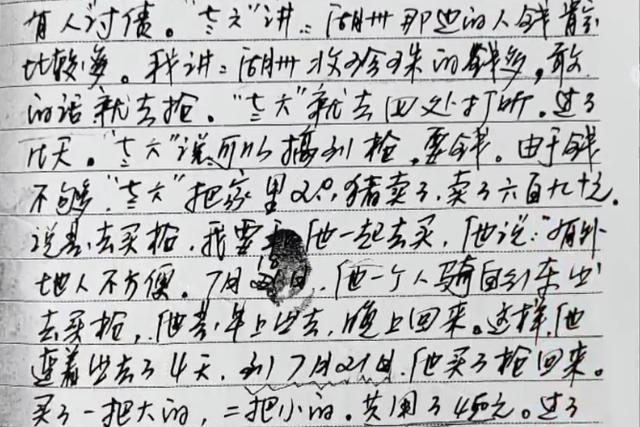 有人讨债。“六六”讲：湖州那边的人钱肯定
比较多。我讲：湖州收珍珠的钱多，敢
的话就去抢。“六六”就去四处打听。过了
几天。“六六”说可以搞到枪，要钱。由于钱
不够，“六六”把家里2只猪卖了，卖了六百九十元。
说是去买枪，我要和他一起去买，他说：“有外
地人不方便。7月18日，他一个人骑自行车出
去买枪，他是早上出去，晚上回来。这样，他
连着出去了4天，到7月21日，他买了枪回来。
买了一把大的，二把小的。共用了450元。过了